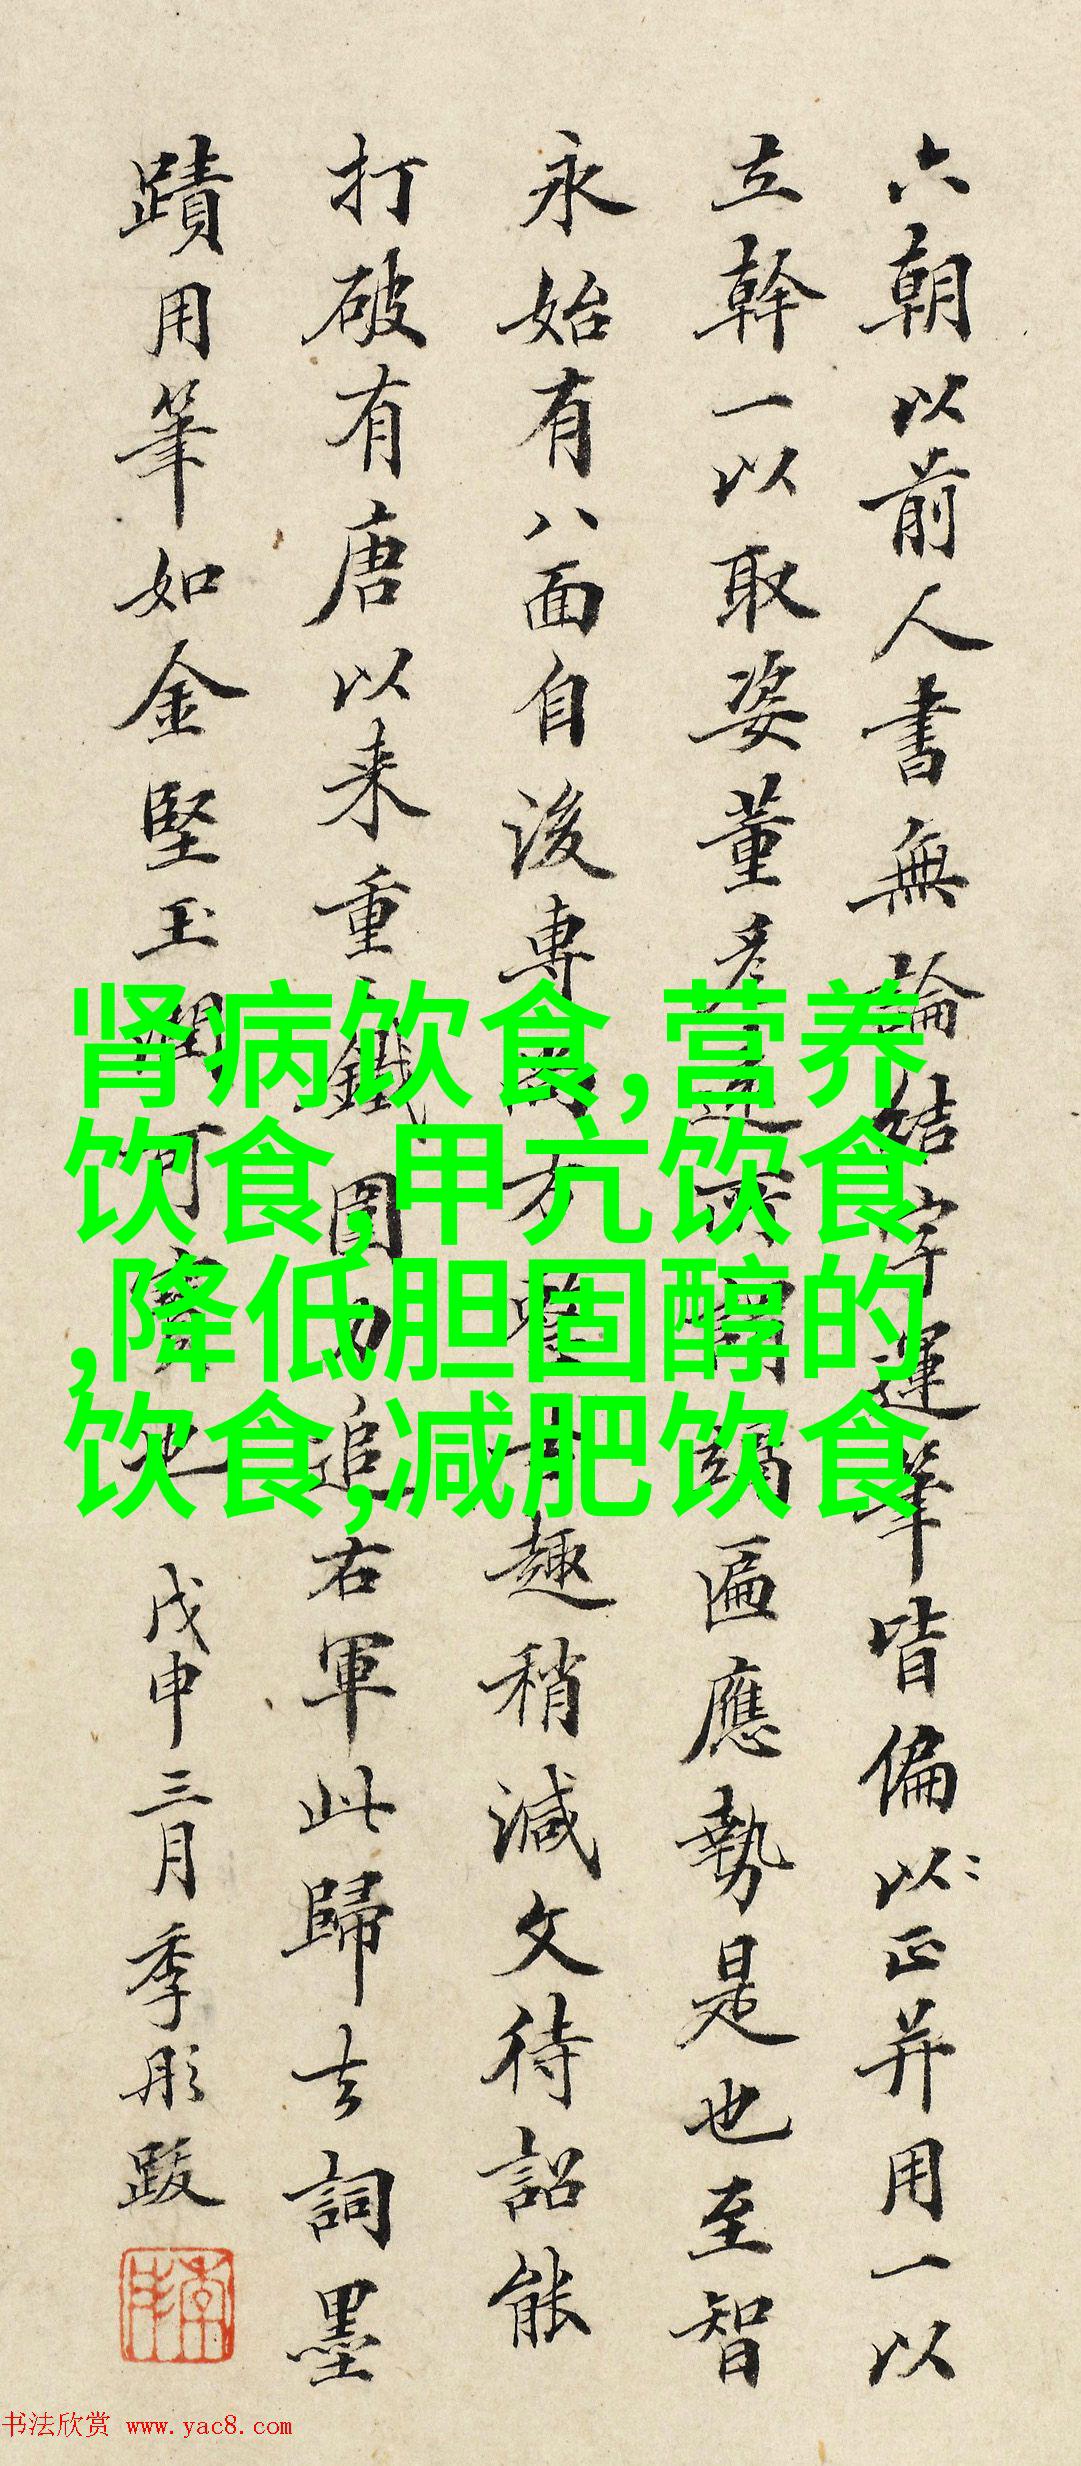 六朝以前人書無論結字運筆皆偏以正并用一以
立幹一以取姿董彥遠所謂竭匾應勢是也至智
永始有八面自後專尚方整古趣稍減文待詔能
打破有唐以来重鐵圍力追右軍此歸去詞墨
蹟用筆如金堅玉潤可寶也
戊申三月季彤跋
肾病饮食,营养
饮食,甲亢饮食
,降低胆固醇的
饮食,减肥饮食
书法欣赏 www.yac8.com